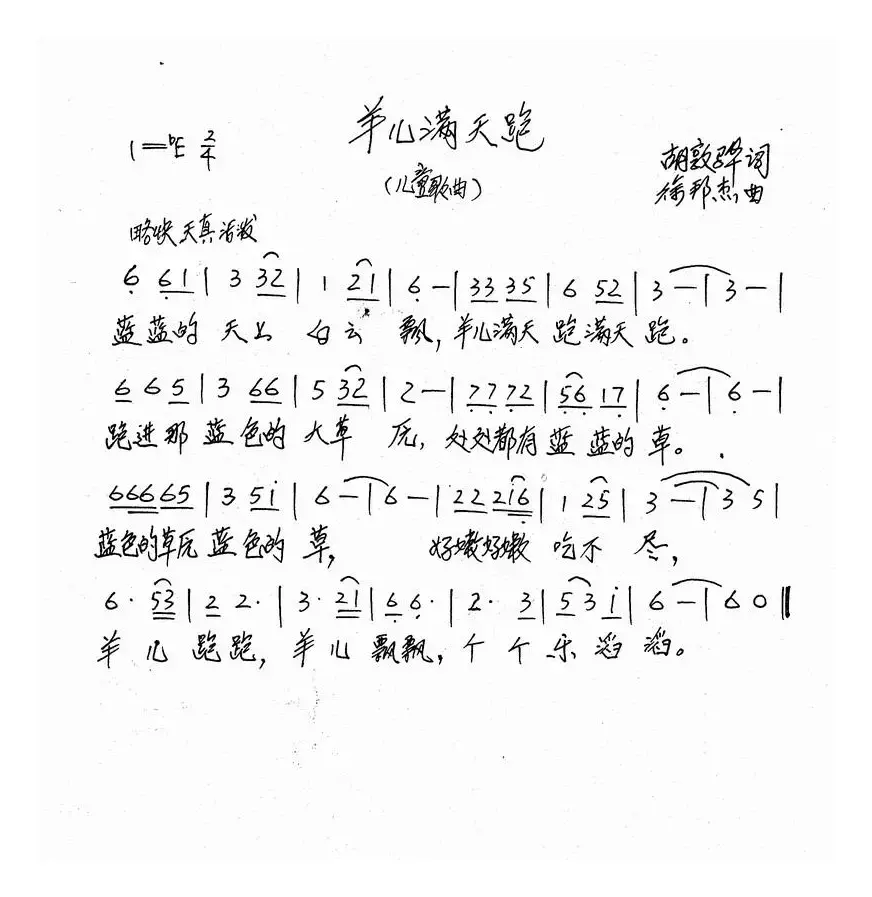 羊儿满天跑
1=♭E 2/4
（儿童歌曲）
胡敦骅词
徐邦杰曲
略快 天真活泼
6̣ 6̣1 | 3 32 | 1 21 | 6̣ — | 33 35 | 6 52 | 3 — | 3 — |
蓝蓝的 天上 白云 飘，羊儿满天 跑满天 跑。
6 6 5 | 3 66 | 5 32 | 2 — | 7̣7̣ 7̣2 | 5̣6̣ 17̣ | 6̣ — | 6̣ — |
跑进那 蓝色的 大草 原，处处都有 蓝蓝的 草。
66665 | 3 5i | 6 — | 6 — | 22 2i6 | 1 25 | 3 — | 3 5 |
蓝色的草原 蓝色的 草， 好嫩好嫩 吃不 尽，
6· 53 | 2 2· | 3· 21 | 6̣ 6̣· | 2· 3 | 5 3 i | 6 — | 6 0 ‖
羊 儿 跑跑，羊 儿 飘飘，个 个 乐 滔 滔。